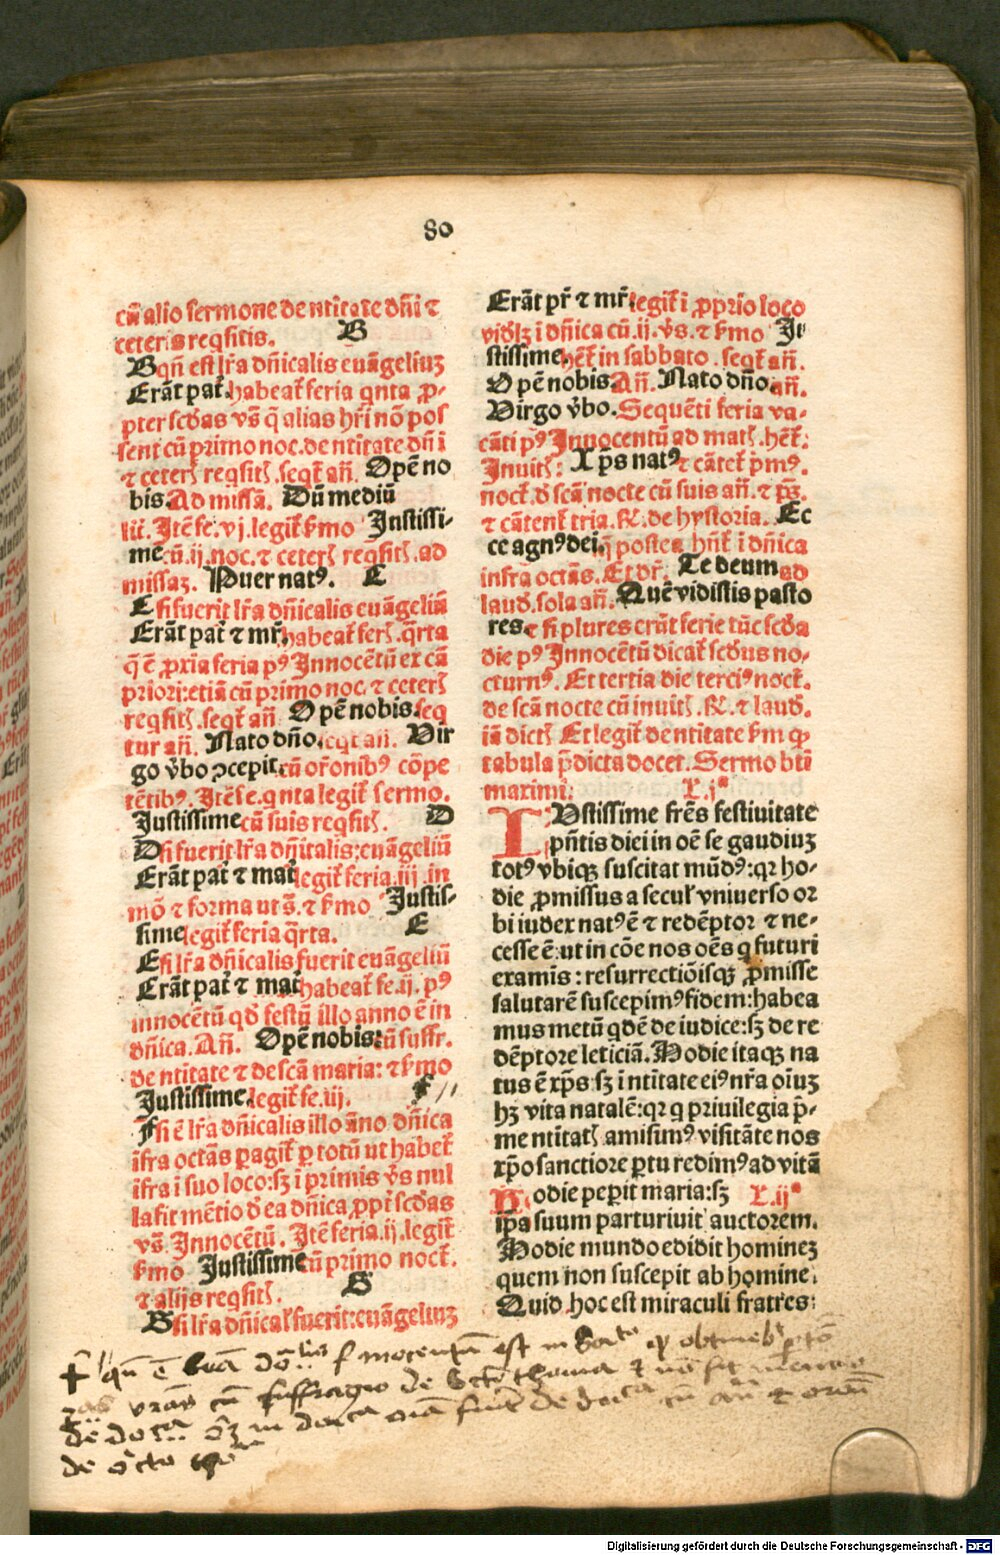 80
cū alio sermone de ntitate dñi ⁊
ceteris reqsitis. B
Bqñ est lr̄a dñicalis euāgeliuꝫ
Erāt pat̄. habeat̄ feria qnta ꝓ-
pter scd̄as vs̄ q̄ alias hr̄i nō pos
sent cū primo noc. de ntitate dñi i
⁊ ceteꝝ reqsitꝭ. seqt̄ añ. Opē no
bis. Ad missā. Dū mediū
lit̄. Itē fe. vj. legit̄ s̄mo Justissi-
me cū .ij. noc. ⁊ ceteꝝ reqsitꝭ. ad
missaꝫ. Puer natꝰ. C
C si fuerit lr̄a dñicalis euāgeliū
Erāt pat̄ ⁊ mr̄. habeat̄ ferꝭ. q̄rta
q̄ ē ꝓxīa feria pꝰ Innocētū ex cā
priori: etiā cū primo noc. ⁊ ceterꝭ
reqsitꝭ. seqt̄ añ Opē nobis. seq
tur añ. Nato dño. seqt̄ añ. Vir
go v̄bo ꝯcepit. cū or̄onibꝰ cōpe
tētibꝰ. Itē fe. qnta legit̄ sermo.
Justissime cū suis reqsitꝭ. D
D si fuerit lr̄a dñitalis: euāgeliū
Erāt pat̄ ⁊ mat̄ legit̄ feria .iij. in
mō ⁊ forma ut s̄. ⁊ s̄mo Justis-
sime legit̄ feria q̄rta. E
E si lr̄a dñicalis fuerit euāgeliū
Erāt pat̄ ⁊ mat̄ habeat̄ fe. ij. pꝰ
innocētū qd̄ festū illo anno ē in
dñica. Añ. Opē nobis: cū suffr.
de ntitate ⁊ de scā maria: ⁊ s̄mo
Justissime. legit̄ fe. iij. F
F si ē lr̄a dñicalis illo āno dñica
īfra octās ꝑagit̄ ꝑ totū ut habet̄
īfra i suo loco: sꝫ i primis v̄s nul
la fit mētio d̄ ea dñica ꝓpt̄ scd̄as
vs̄. Innocētū. Itē feria .ij. legit̄
s̄mo Justissime cū primo noct̄.
⁊ alijs reqsitꝭ. G
G si lr̄a dñical̄ fuerit: euāgeliuꝫ
Erāt pr̄ ⁊ mr̄. legit̄ i ꝓprio loco
vidlꝫ i dñica cū .ij. v̄s. ⁊ s̄mo Ju
stissime. het̄ in sabbato. seqt̄ añ.
Opē nobis. Añ. Nato dño. añ.
Virgo v̄bo. Sequēti feria va-
cāti pꝰ Innocentū ad matꝭ. het̄.
Inuitꝭ: Xp̄s natꝰ ⁊ cātet̄ p̄mꝰ.
noct̄. d̄ scā nocte cū suis añ. ⁊ ps̄.
⁊ cātent̄ tria. ℟. de hystoria. Ec
ce agnꝰ dei. q̄ postea hn̄t̄ i dñica
infra octās. Et dr̄. Te deum ad
laud̄. sola añ. Quē vidistis pasto
res. ⁊ si plures erūt ferie tūc scd̄a
die pꝰ Innocētū dicat̄ scd̄us no-
cturnꝰ. Et tertia die terciꝰ noct̄.
de scā nocte cū inuitꝭ. ℟. ⁊ laud̄.
iā dictꝭ Et legit̄ de ntitate s̄m qꝫ
tabula p̄dicta docet. Sermo bt̄i
maximi. L. jª
IUstissime frēs festiuitate
pn̄tis diei in oē se gaudiuꝫ
totꝰ vbiqꝫ suscitat mūdꝰ: qr ho-
die ꝓmissus a secul̄ vniuerso or
bi iudex natꝰ ē ⁊ redēptor ⁊ ne-
cesse ē: ut in cōe nos oēs q futuri
examīs: resurrectiōisqꝫ ꝓmisse
salutarē suscepimꝰ fidem: habea
mus metū qdē de iudice: sꝫ de re
dēptore leticiā. Hodie itaqꝫ na
tus ē xp̄s sꝫ i ntitate eiꝰ nr̄a oīuꝫ
hꝫ vita natalē: qr q priuilegia p̄-
me ntitatꝭ amisimꝰ visitāte nos
xp̄o sanctiore ꝑtu redimꝰ ad vitā
Hodie peperit maria: sꝫ L. ijª
ip̄a suum parturiuit auctorem.
Hodie mundo edidit homineꝫ
quem non suscepit ab homine.
Quid hoc est miraculi fratres:
de
Digitalisierung gefördert durch die Deutsche Forschungsgemeinschaft - DFG